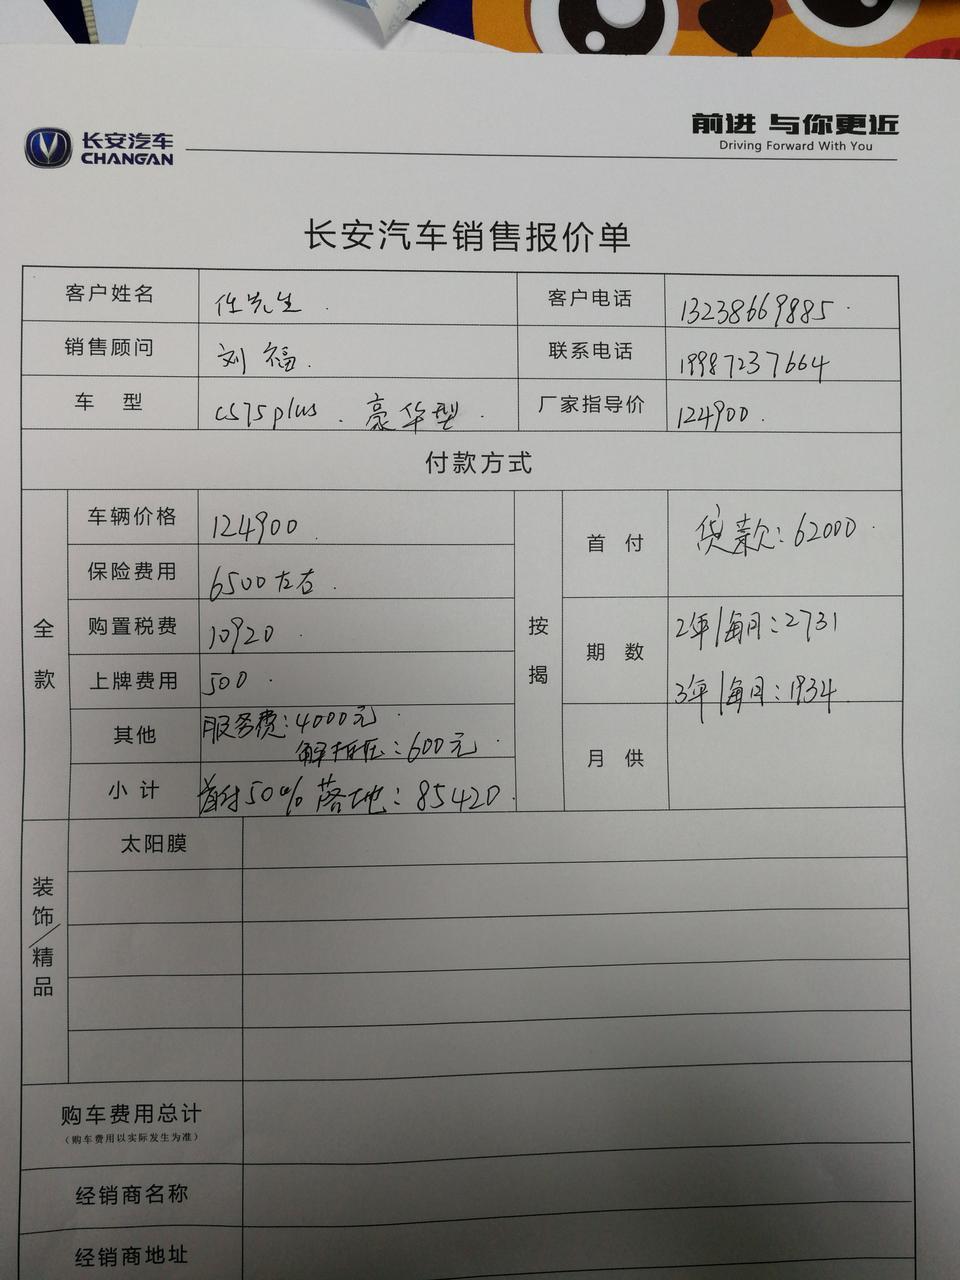 长安汽车
CHANGAN
前进 与你更近
Driving Forward With You
长安汽车销售报价单
客户姓名 任先生. 客户电话 13238669885.
销售顾问 刘福. 联系电话 19987237664
车 型 cs75plus. 豪华型. 厂家指导价 124900.
付款方式
全款 按揭
车辆价格 124900. 首 付 贷款:62000.
保险费用 6500左右.
购置税费 10920. 期 数 2年/每月:2731
上牌费用 500. 3年/每月:1934.
其他 服务费:4000元. 月 供
解抵压:600元.
小计 首付50%落地:85420.
装饰/精品
太阳膜
购车费用总计
(购车费用以实际发生为准)
经销商名称
经销商地址